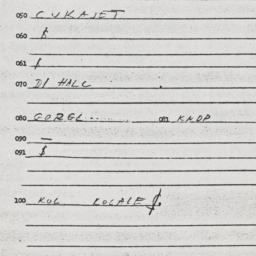 050 CUKAJET
060 $
061 $
070 DI HALL .
080 GORGL...... 081 KNOP
090 —
091 $
100 KUL LOCALE $.